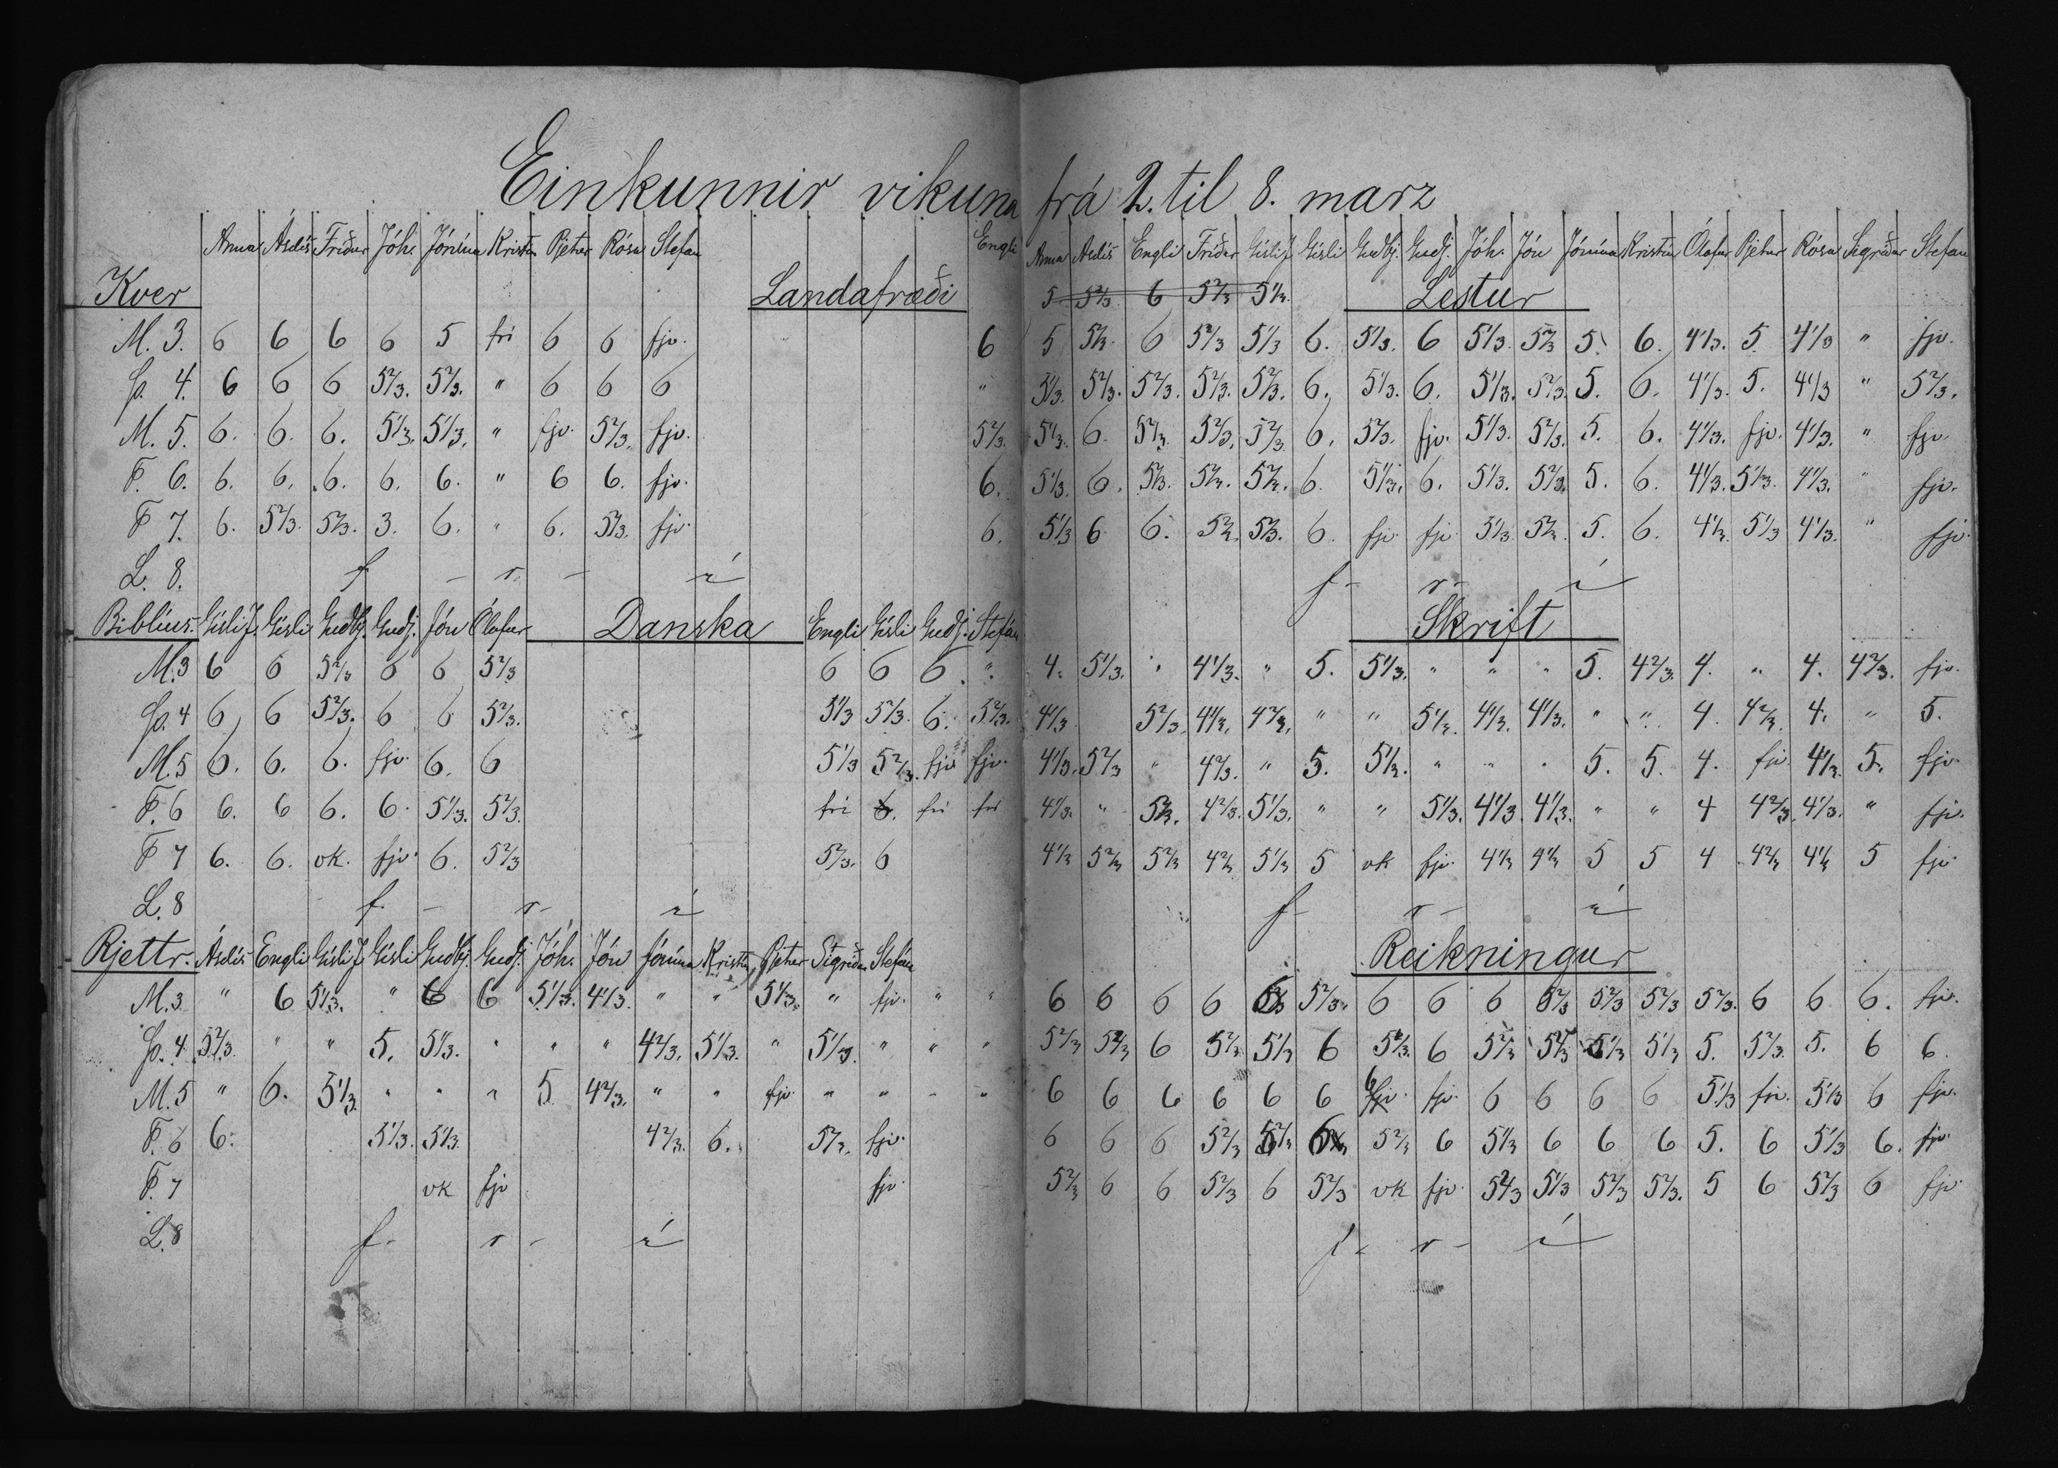 Einkunnir vikuna frá 2. til 8. marz
Anna Ásdís Fríður Jóh. Jónína Kristín Pjetur Rósa Stefán Engli
Kver Landafræði
M. 3. 6 6 6 6 5 frí 6 6 fjv. 6
Þ. 4. 6 6 6 5 2/3. 5 2/3. " 6 6 6 "
M. 5. 6. 6. 6. 5 1/3. 5 1/3. " fjv. 5 2/3. fjv. 5 2/3.
F. 6. 6. 6. 6. 6. 6. " 6 6. fjv. 6.
F 7. 6. 5 2/3. 5 2/3. 3. 6. " 6. 5 2/3. fjv. 6.
L. 8. f - r - í
Biblíus. Gísli J. Gísli Guðbj. Guðj. Jón Ólafur Danska Engli Gísli Guðj. Stefán
M.3 6 6 5 2/3 6 6 5 2/3 6 6 6. "
Þ. 4 6 6 5 2/3. 6 6 5 2/3. 5 1/3 5 1/3. 6. 5 2/3.
M.5 6. 6. 6. fjv. 6. 6 5 1/3 5 2/3. fjv fjv.
F. 6 6. 6 6. 6. 5 1/3. 5 2/3. frí 6. frí frí
F 7 6. 6. vk. fjv. 6. 5 2/3 5 2/3. 6
L. 8 f - r - í
Rjettr. Ásdís Engli Gísli J. Gísli Guðbj. Guðj. Jóh. Jón Jónína Kristín Pjetur Sigríður Stefán
M.3 " 6 5 1/3. " 6 6 5 1/3. 4 1/3. " " 5 1/3. " fjv. " "
Þ. 4 5 2/3. " " 5. 5 1/3. " " " 4 2/3. 5 1/3. " 5 1/3. " " "
M.5 " 6. 5 1/3 " " " 5 4 2/3. " " fjv. " " " "
F. 6 6. 5 1/3. 5 1/3. 4 2/3. 6. 5 2/3. fjv.
F. 7 vk fjv fjv.
L.8 f - r - í
Anna Ásdís Engli Fríður Gísli J Gísli Guðbj. Guðj. Jóh. Jón Jónína Kristín Ólafur Pjetur Rósa Sigríður Stefán
5 5 2/3. 6 5 2/3 5 1/3. Lestur
5 5 2/3. 6 5 2/3 5 1/3 6. 5 1/3. 6 5 1/3. 5 2/3 5. 6. 4 1/3. 5. 4 1/3 " fjv.
5 1/3. 5 2/3. 5 2/3. 5 2/3. 5 2/3. 6. 5 1/3. 6. 5 1/3. 5 2/3. 5. 6. 4 1/3. 5. 4 1/3 " 5 2/3.
5 1/3. 6. 5 2/3. 5 2/3. 5 2/3 6. 5 2/3. fjv. 5 1/3. 5 2/3. 5. 6. 4 1/3. fjv. 4 1/3. " fjv.
5 1/3. 6. 5 2/3. 5 2/3. 5 2/3. 6. 5 1/3. 6. 5 1/3. 5 2/3. 5. 6. 4 1/3. 5 1/3. 4 1/3. " fjv.
5 1/3 6 6. 5 2/3. 5 2/3. 6. fjv. fjv 5 1/3. 5 2/3. 5. 6. 4 1/3. 5 1/3 4 1/3. " fjv.
f - r - í
Skrift
4. 5 1/3. " 4 1/3. " 5. 5 1/3. " " " 5. 4 2/3. 4. " 4. 4 2/3. fjv.
4 1/3 5 2/3. 4 1/3. 4 2/3. " " 5 1/3. 4 1/3. 4 1/3. " " 4 4 2/3. 4. " 5.
4 1/3. 5 2/3 " 4 2/3. " 5. 5 1/3. " " " 5. 5. 4. fjv 4 1/3. 5. fjv.
4 1/3. " 5 2/3. 4 2/3. 5 1/3. " " 5 1/3. 4 1/3 4 1/3. " " 4 4 2/3. 4 1/3. " fjv.
4 1/3 5 2/3 5 2/3 4 2/3 5 1/3 5 vk fjv. 4 1/3 4 1/3 5 5 4 4 2/3 4 1/3 5 fjv.
f - r - í
Reikningur
6 6 6 6 5 2/3. 6 6 6 5 2/3 5 2/3 5 2/3. 6 6 6. fjv.
5 2/3 5 2/3 6 5 2/3 5 1/3 6 5 2/3. 6 5 2/3 5 1/3 5 1/3 5. 5 2/3. 5. 6 6.
6 6 6 6 6 6 6 fjv. fjv. 6 6 6 6 5 1/3 5 1/3 6 fjv.
6 6 6 5 2/3 5 2/3 6 5 1/3 6 6 6 5. 6 5 1/3 6. fjv
5 2/3 6 6 5 2/3 6 5 2/3 vk fjv. 5 2/3 5 1/3 5 2/3 5 2/3. 5 6 5 2/3 6 fjv.
f - r - í